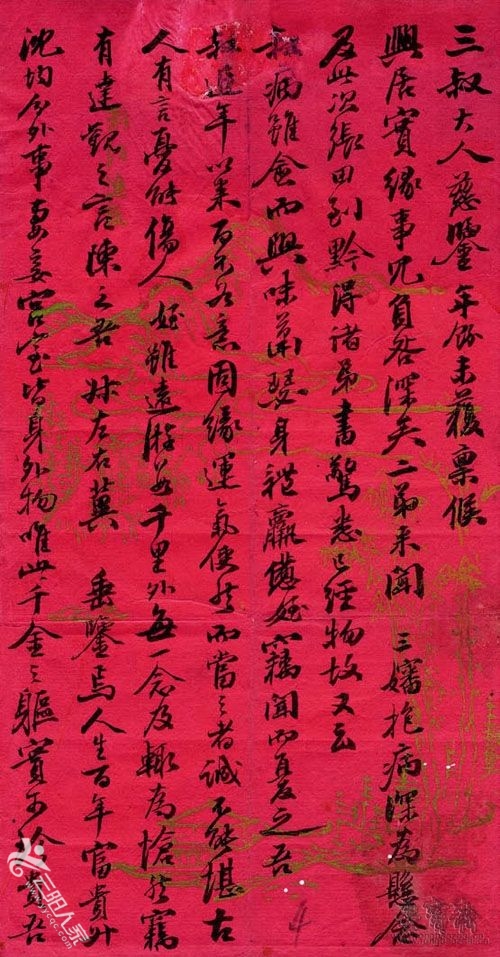 三叔大人慈鑒年餘未獲稟候
興居實緣事冗負咎深矣二弟來聞 三嬸抱病深為懸念
及此次張田到黔得諸弟書驚悉已經物故又云
叔病雖愈而興味蕭瑟身體羸憊姪竊聞而憂之吾
叔近年以來百不如意固緣運氣使然而當之者誠不能堪古
人有言憂能傷人姪雖遠游數千里外每一念及輒為愴然竊
有達觀之言陳之吾叔左右冀 垂鑒焉人生百年富貴升
沈均分外事妻妾宮室皆身外物唯此千金之軀實可珍貴吾
4
云阳人家